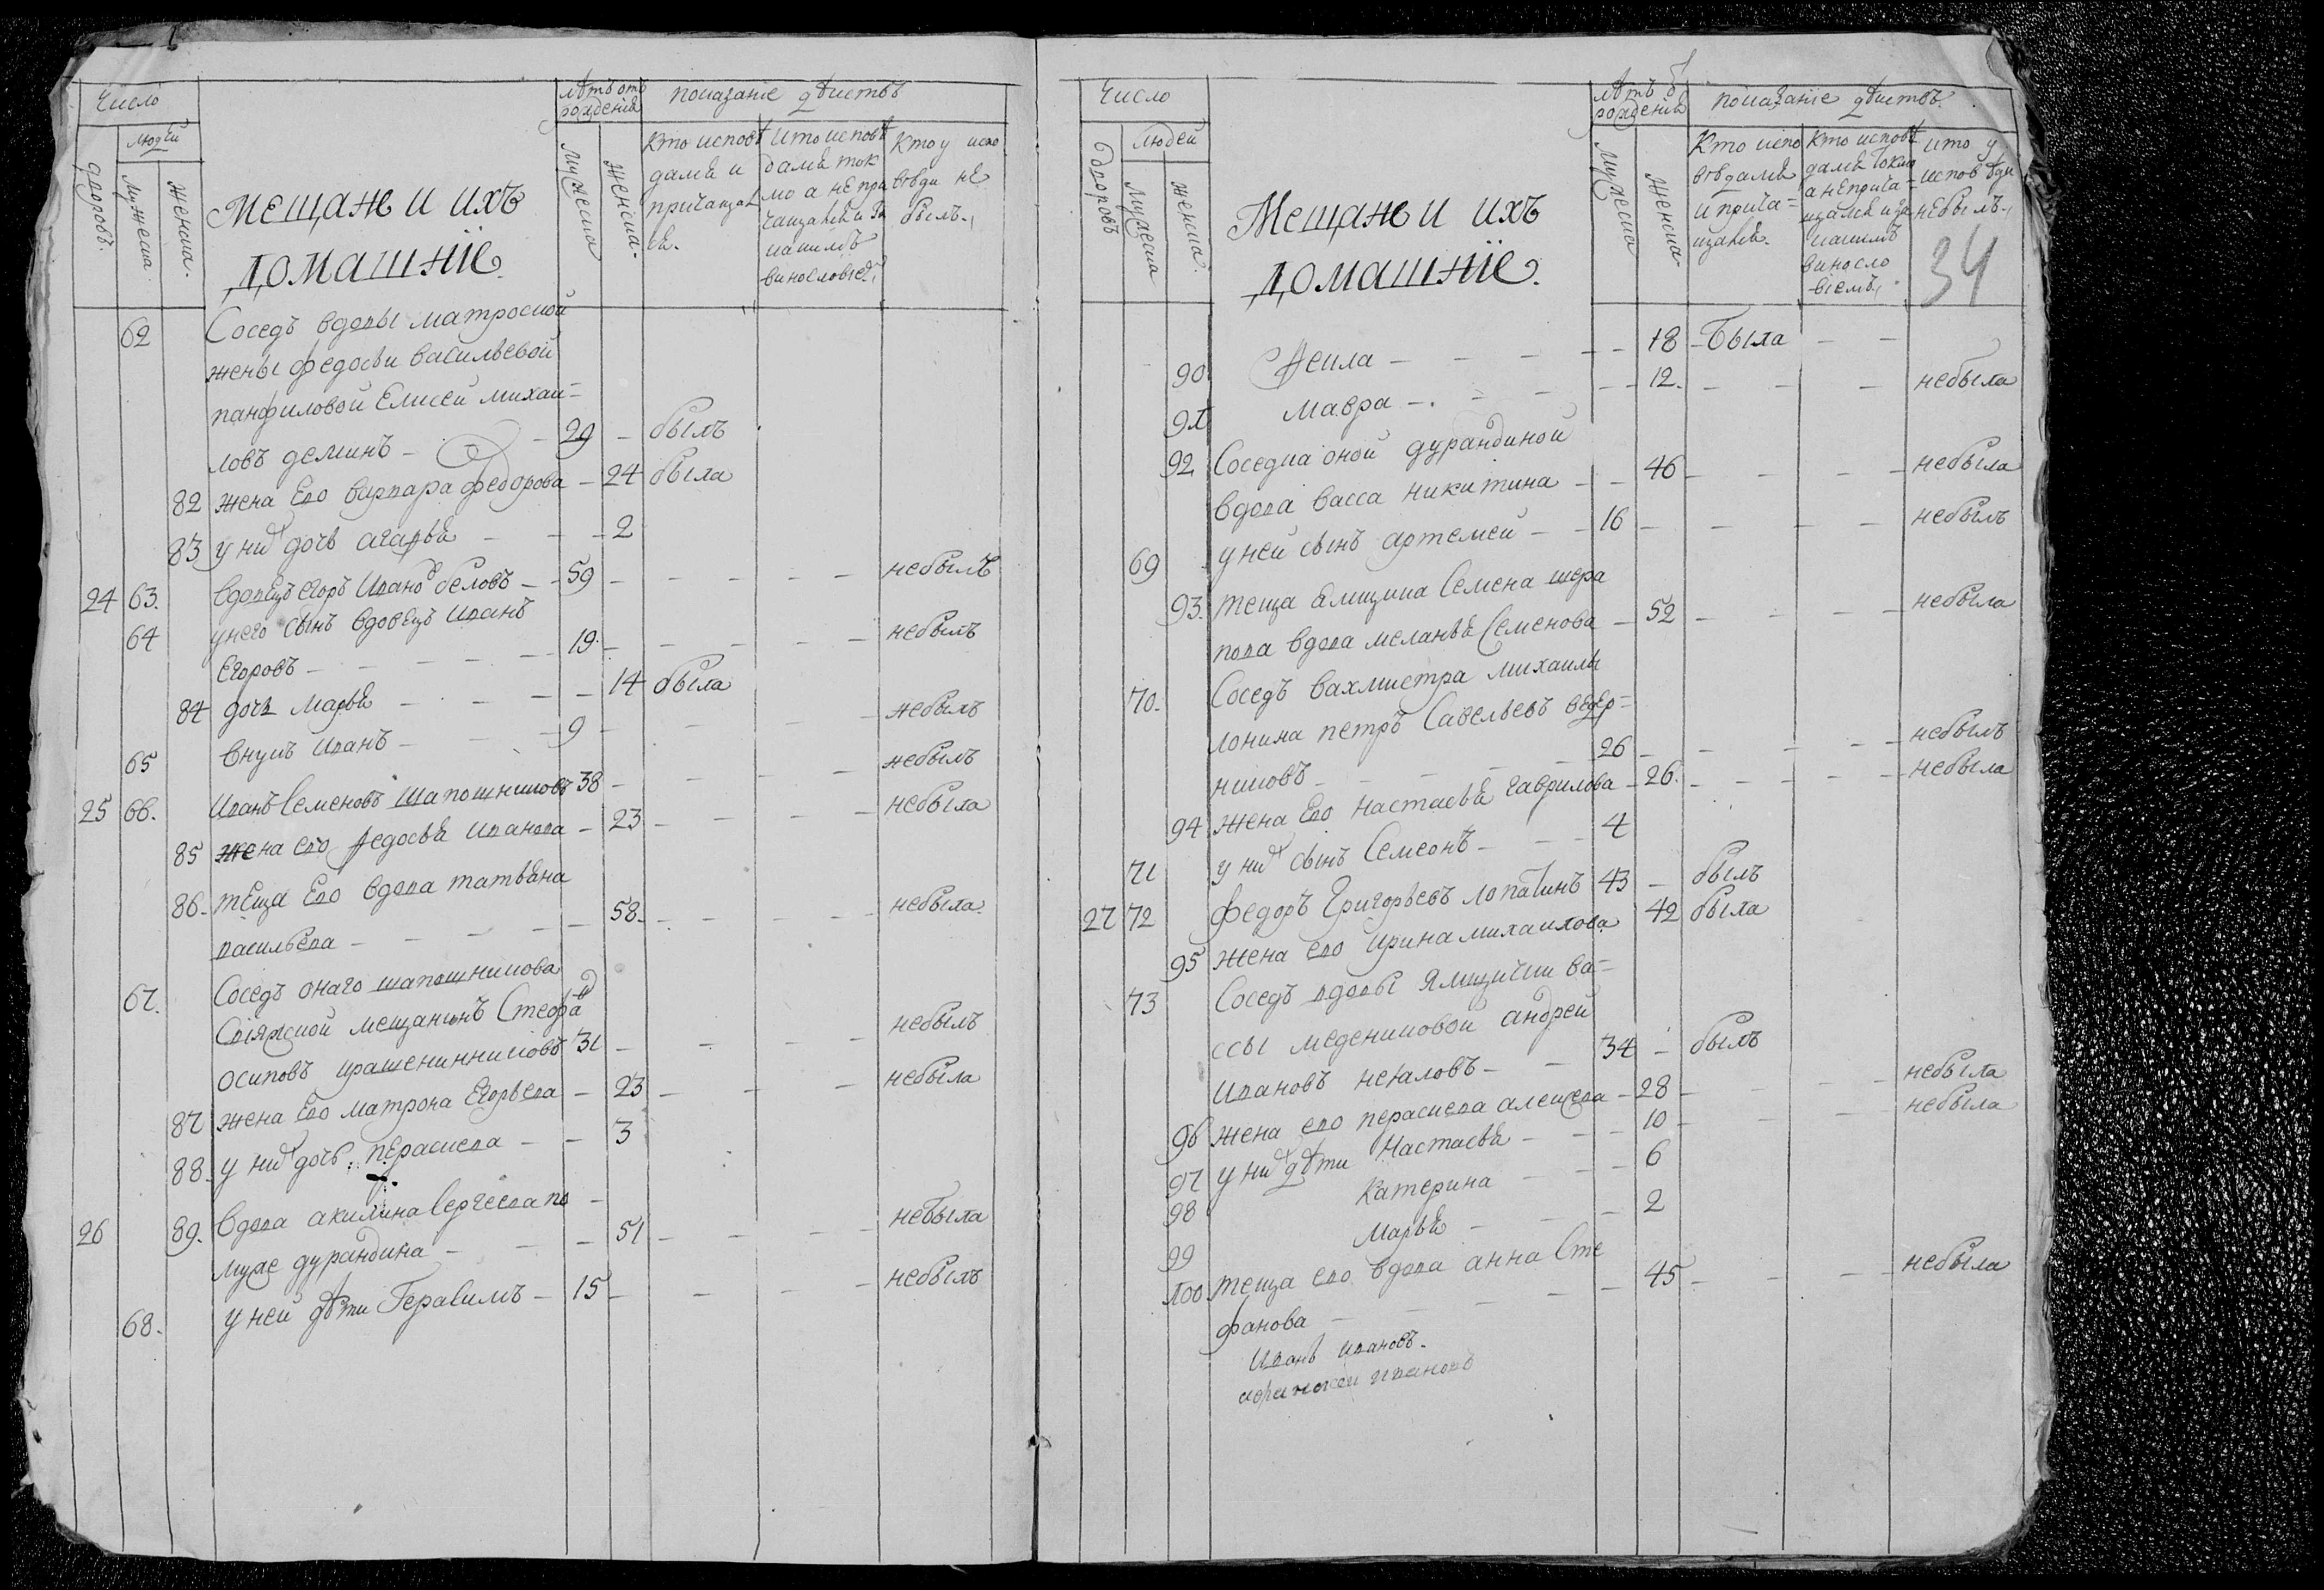 Число
Людей
дворовъ.
Мужеска.
Женска.
Мещане и ихъ
домашніе.
лѣтъ отъ
рожденія
Мужеска
Женска.
показаніе действъ
Кто исповѣ
дался и
причащал
ся.
Кто исповѣ
дался ток
мо а не при
чащался и за
какимъ
винословіе
Кто у испо
вѣди не
былъ.
62 Соседъ вдовы матроской
жены федосьи васильевой
панфиловой Елисей михаи=
ловъ деминъ - 29 - былъ
82 жена Ево варвара федорова - 24 была
83 у них дочь агафья - - 2
24 63. вдовецъ егоръ Иванов беловъ - 59 - - - - небылъ
64 унего сынъ вдовецъ иванъ
Егоровъ - - - 19. - - - - небылъ
84 дочь марья - - - - 14 была
65 внукъ иванъ - - - 9 - - - - небылъ
25 66. иванъ Семеновъ шапошниковъ 38 - - - - небылъ
85 жена ево федосья иванова - 23 - - - - небыла
86. теща Ево вдова татьяна
васильева - - - - 58. - - - - небыла.
67. Соседъ онаго шапошникова
Свіяжской мещанинъ Стефа
осиповъ крашенинниковъ 31 - - - - небылъ
87 жена Ево матрона Егорьева - 23 - - - небыла
88. у них дочь: параскева - - 3
26 89. вдова акилина Сергеева по -
муже дурандина - - - 51 - - - - небыла
68. у ней дѣти Герасимъ - 15 - - - - небылъ
Число
Людей
дворовъ
Мужеска
женска.
Мещане и ихъ
домашніе.
лѣтъ
рожденія
Мужеска
Женска
показаніе действъ.
Кто испо
вѣдался
и прича=
щался.
Кто исповѣ
дался токмо
а неприча=
щался и за
какимъ
виносло
віемъ
Кто у
исповѣди
небылъ.
34
90 Фекла - - - - 18 - была - -
91 мавра - - - - 12. - - - небыла
92 Соседка оной дурандиной
вдова васса никитина - - 46 - - - - небыла
69 у ней сынъ артемей - - 16 - - - - небылъ
93. теща ямщика Семена шера
пова вдова меланья Семенова - 52 - - - - небыла
70. Соседъ вахмистра михаилы
лонина петръ Савельевъ ведер=
никовъ - - - 26 - - - - небылъ
94 жена Ево настасья гаврилова - 26. - - - - небыла
71 у них сынъ Семеонъ - - - 4
27 72 федоръ Григорьевъ лопатинъ 43 - былъ
95 жена ево ирина михаилова 42 была
73 Соседъ вдовы ямщички ва=
ссы меденцовой андрей
ивановъ нехаловъ - - 34 - былъ
96 жена ево параскева алексеева - 28 - - - - небыла
97 у них дѣти Настасья - - - 10 - - - небыла
98 Катерина - - - 6
99 марья - - - 2
100 теща ево вдова анна Сте
фанова - - - - - 45 - - - - небыла
Иванъ ивановъ.
ивановъ